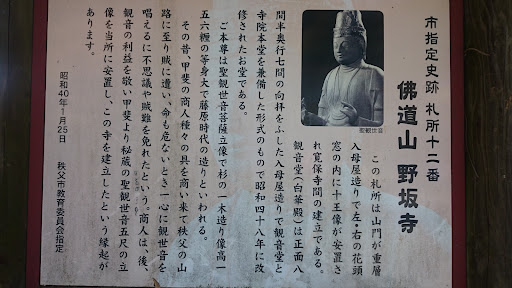 市指定史跡 札所十二番
佛道山 野坂寺
この札所は山門が重層
入母屋造りで左・右の花頭
窓の内に十王像が安置さ
れ寛保寺間の建立である。
観音堂(白華殿)は正面八
間半奥行七間の向拝をふした入母屋造りで観音堂と
寺院本堂を兼備した形式のもので昭和四十八年に改
修されたお堂である。
ご本尊は聖観世音菩薩立像で杉の一木造り像高一
五六糎の等身大で藤原時代の造りといわれる。
その昔、甲斐の商人種々の具を商い来て秩父の山
路に至り賊に遭い、命も危ないとき一心に観世音を
唱えるに不思議や賊難を免れたという。商人は、後、
観音の利益を敬い甲斐より秘蔵の聖観世音五尺の立
像を当所に安置し、この寺を建立したという縁起が
あります。
昭和40年1月25日
秩父市教育委員会指定
聖観世音